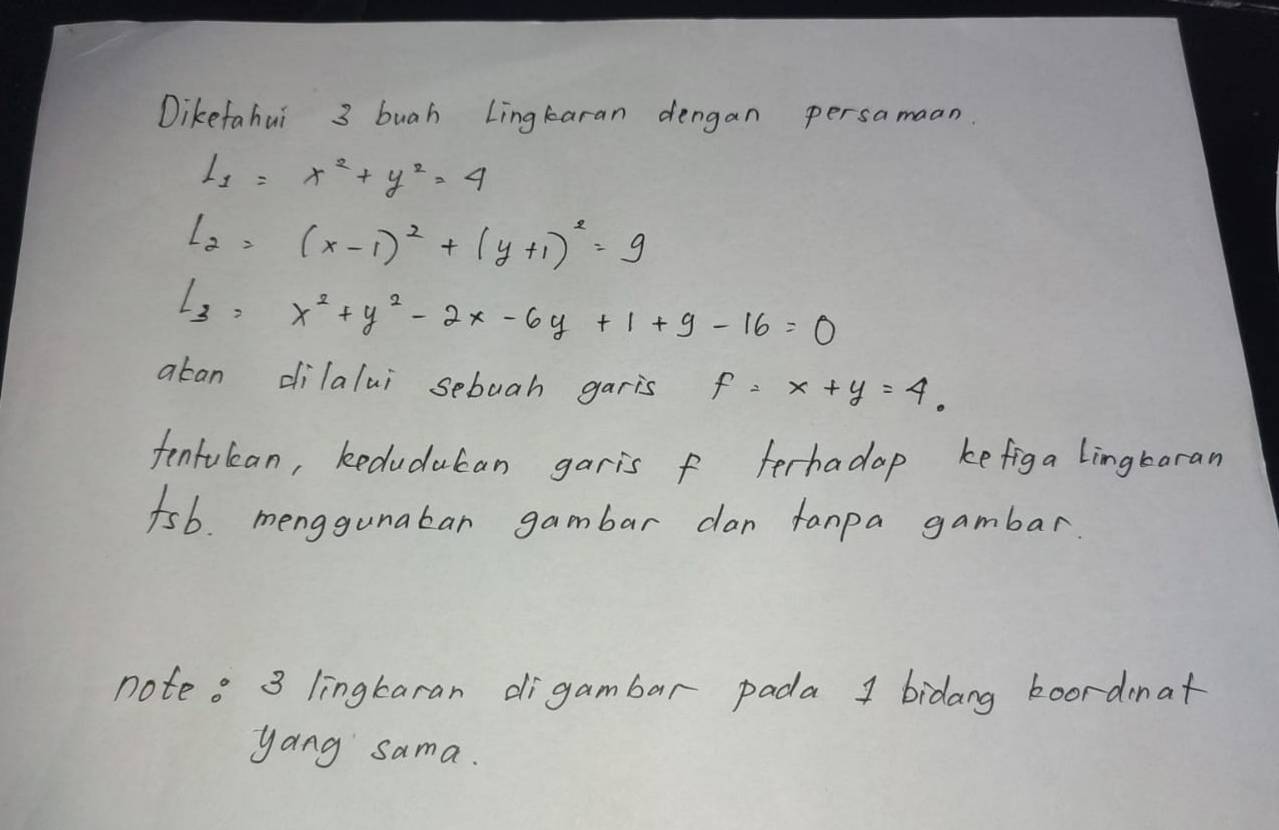 Diketahui 3 buah Lingkaran dengan persamaan.
L₁ = x² + y² = 4
L₂ = (x-1)² + (y+1)² = 9
L₃ = x² + y² - 2x - 6y + 1 + 9 - 16 = 0
akan dilalui sebuah garis f = x + y = 4.
tentukan, kedudukan garis f terhadap ketiga Lingkaran
tsb. menggunakan gambar dan tanpa gambar.
note : 3 lingkaran digambar pada 1 bidang koordinat
yang sama.